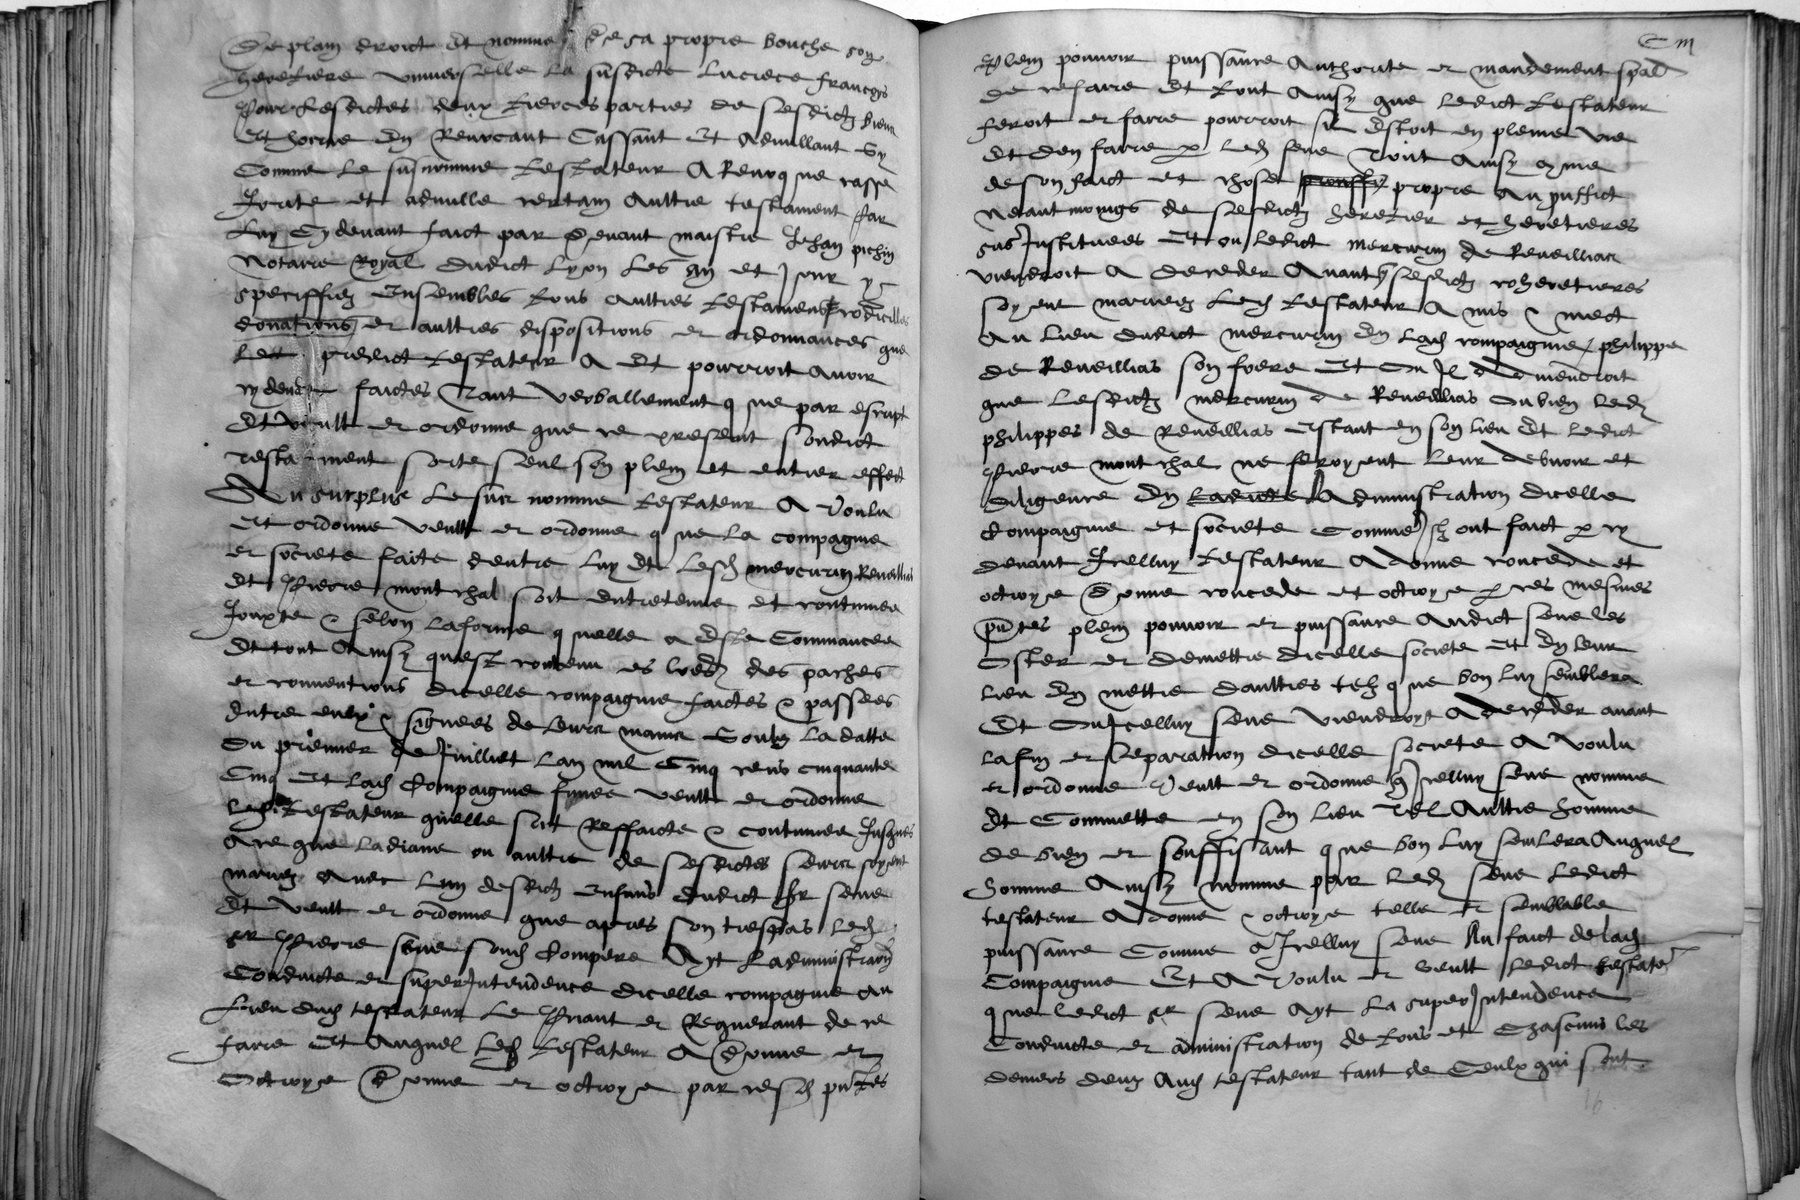 De plain droict et nomme de sa propre bouche son
heretiere universelle la susdicte lucrece francoys
pour lesdictes deux tierces parties de sesdictz biens
Et hoirie En Revocant Cassant Et Adnullant Sy
Comme le susnomme testateur A Revoque casse
Jrrite et adnulle certain aultre testament par
luy Cy devant faict par devant maistre Jehan pichin
Notaire Royal dudict lyon les an et jour y
speciffiez Ensembles tous aultres testamens codicilles
donations et aultres dispositions et ordonnances que
ledit predict testateur A Et pourroit avoir
cydevant faictes Tant verballement que par escript
Et veult et ordonne que ce present sondict
testament sorte seul son plein et entier effect
Au surplus le sus nomme testateur A voulu
Et ordonne veult et ordonne que la compagnie
et societe faite dentre luy Et lesd mercurin Reveillias
Et pierre montchal soit entretenue et continuee
Jouxte & selon la forme quelle a Este Commancee
Et tout Ainsy quest contenu es des paches
et conventions dicelle compaignie faictes & passees
Entre eulx & signees de leurs mains soubz la datte
Du premier de Juilliet lan mil Cinq cens cinquante
Cinq Et lad Compaignie finie veult et ordonne
led testateur quelle soit Reffaicte & continuee Jusques
A ce que ladiane ou aultre de sesdictes seurs soyent
mariez avec lun desdictz Enfans dudict sr seve
Et veult et ordonne que apres son trespas led
sr pierre seve soud Compere Ayt ladministration
Conduicte et superJntendence dicelle compagnie au
lieu dud testateur le priant et Requerant de ce
faire Et Auquel led testateur A donne et
Octroye donne et octroye par cesd pntes
Plein pouvoir puissance Authorite et mandement spal
de ce faire Et tout Ainsy que ledict testateur
feroit et faire pourroit sil Estoit en pleine vie
Et den faire par led seve Tout Ainsy que
de son faict et chose propre Au puffict
Neantmoings de sesdictz heretier et heretieres
sus Jnstituees Et ou ledict mercurin de Reveillias
viendroit A deceder Avant que sesdictz coheretieres
soyent mariees led testateur A mis & mect
Au lieu dudict mercurin En lad compaignie philippe
de Reveillias son frere Et ou Jl Adviendroit
que lesdictz mercurin de Reveillias ou bien led
philippes de Reveillias Estant en son lieu Et ledict
pierre montchal ne feroyent leur debvoir et
diligence En ladicte Administration dicelle
Compaignie et societe Comme Jlz ont faict par cy
devant Jcelluy testateur A donne concede et
octroye donne concede et octroye par ces mesmes
pntes plein pouvoir et puissance Audict seve les
Oster et demettre dicelle societe Et En leur
lieu En mettre daultres telz que bon luy semblera
Et ou Jcelluy seve viendroyt A deceder avant
la fin et Separation dicelle societe A voulu
et ordonne veult et ordonne que Jcelluy seve nomme
Et Commette en son lieu Tel Aultre homme
de bien et souffisant que bon luy semblera Auquel
homme Ainsy nomme par led seve ledict
testateur A donne & octroye telle et semblable
puissance Comme a Jcelluy seve Au faict de lad
Compaignie Et A voulu et veult ledict testateur
que ledict sr seve Ayt la superJntendence
Conduicte et administration de tous et Chascuns les
deniers deuz Aud testateur tant de Ceulx qui sont